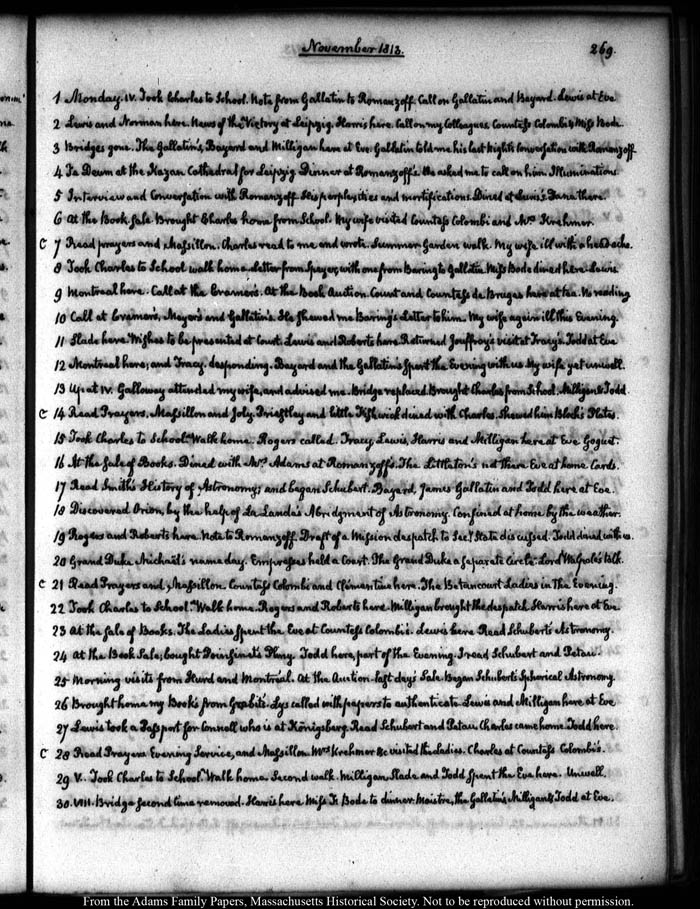 November 1813. 269.
1 Monday. IV. Took Charles to School. Note from Gallatin to Romanzoff. Call on Gallatin and Bayard. Lewis at Eve
2 Lewis and Norman here. News of the Victory at Leipzig. Harris here. Call on my Colleagues. Countess Colombi & Miss Bode.
3 Bridges gone. The Gallatin's, Bayard and Milligan here at Eve. Gallatin told me his last Night's Conversation with Romanzoff
4 Te Deum at the Kazan Cathedral for Leipzig Dinner at Romanzoff's. He asked me to call on him. Illuminations
5 Interview and Conversation with Romanzoff. His perplexities and mortifications. Dined at Lewis's Dana there.
6 At the Book Sale Brought Charles home from School. My wife visited Countess Colombi and Mrs. Krehmer.
C 7 Read prayers and Massillon. Charles read to me and wrote. Summer Garden walk. My wife ill with a head ache.
8 Took Charles to School walk home. Letter from Speyer, with one from Baring to Gallatin. Miss Bode dined here. Lewis
9 Montreal here. Call at the Cramer's. At the Book Auction Count and Countess de Bruges here at tea. No reading
10 Call at Cramer's, Meyer's and Gallatin's. He shewed me Baring's Letter to him. My wife again ill this Evening.
11 Slade here. Wishes to be presented at Court. Lewis and Roberts here. Returned Jouffroy's visit at Tracy's. Todd at Eve
12 Montreal here; and Tracy. desponding. Bayard and the Gallatin's spent the Evening with us My wife yet unwell.
13 Up at IV. Galloway attended my wife, and advised me. Bridge replaced. Brought Charles from School. Milligan & Todd
C 14 Read Prayers, Massillon and Joly. Priestley and little Fishwick dined with Charles. Shewed him Bloch's Plates.
15 Took Charles to School. Walk home. Rogers called. Tracy, Lewis, Harris and Milligan here at Eve. Goguet.
16 At the Sale of Books. Dined with Mrs. Adams at Romanzoff's. The Littleton's not there Eve at home Cards.
17 Read Smith's History of Astronomy; and began Schubert. Bayard, James Gallatin and Todd here at Eve.
18 Discovered Orion, by the help of La Lande's Abridgment of Astronomy. Confined at home by the weather.
19 Rogers and Roberts here. Note to Romanzoff. Draft of a Mission despatch to Secy. State discussed. Todd dined with us.
20 Grand Duke Michael's name day. Empresses held a Court. The Grand Duke a separate circle. Lord Walpole's talk.
C 21 Read Prayers and Massillon. Countess Colombi and Clémentine here. The Betancourt Ladies in the Evening.
22 Took Charles to School. Walk home. Rogers and Roberts here. Milligan brought the despatch Harris here at Eve.
23 At the Sale of Books. The Ladies spent the Eve at Countess Colombi's. Lewis here Read Schubert's Astronomy.
24 At the Book Sale; bought Poinsinet's Pliny. Todd here, part of the Evening. I read Schubert and Petau.
25 Morning visits from Hurd and Montreal. At the Auction. last day's Sale Began Schubert's Spherical Astronomy.
26 Brought home my Books from Lys called with papers to authenticate Lewis and Milligan here at Eve
27 Lewis took a Passport for Connell who is at Königsberg. Read Schubert and Petau. Charles came home. Todd here
C 28 Read Prayers Evening Service, and Massillon. Mrs Krehmer &c visited the Ladies. Charles at Countess Colombi's.
29 V. Took Charles to School. Walk home Second walk. Milligan, Slade and Todd spent the Eve here. Unwell.
30. VIII. Bridge second time removed. Harris here Miss Bode to dinner. Maistre, the Gallatins, Milligan & Todd at Eve.
From the Adams Family Papers, Massachusetts Historical Society. Not to be reproduced without permission.